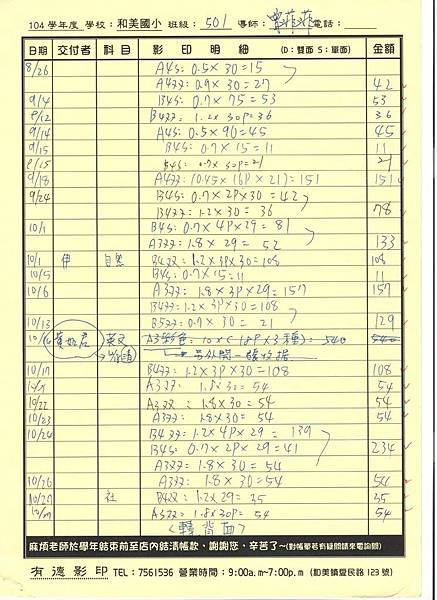 104 學年度 學校：和美國小 班級：501 導師：曾菲菲 電話：
日期 交付者 科目 影印明細 (D：雙面 S：單面) 金額
8/26 A4S: 0.5×30=15
A4双: 0.9×30=27 42
9/4 B4S: 0.7×75=53 53
9/12 B4双: 1.2×30P=36 36
9/14 A4S: 0.5×90=45 45
9/15 B4S: 0.7×15=11 11
9/15 B4S: 0.7×30P=21 21
9/18 A4双: (0.45×16P×21)=151 151
9/24 B4S: 0.7×2P×30=42
B4双: 1.2×30=36 78
10/1 B4S: 0.7×4P×29=81
A3双: 1.8×29=52 133
10/1 伊 自然 B4双: 1.2×3P×30=108 108
10/5 B4S: 0.7×15=11 11
10/6 A3双: 1.8×3P×29=157 157
B4双: 1.2×3P×30=108
10/13 B5双: 0.7×30=21 129
10/16 英文 A3彩色: 10×(18P×3種)=540 540
另外開一張收据
10/19 B4双: 1.2×3P×30=108 108
A3双: 1.8×30=54 54
10/22 A3双: 1.8×30=54 54
10/23 A3双: 1.8×30=54 54
10/24 B4双: 1.2×4P×29=139
B4S: 0.7×2P×29=41 234
A3双: 1.8×30=54
10/26 A3双: 1.8×30=54 54
10/27 社 B4双: 1.2×29=35 35
10/27 A3双: 1.8×30P=54 54
〈轉背面〉
麻煩老師於學年結束前至店內結清帳款、謝謝您、辛苦了~(對帳單若有疑問請來電詢問)
有德影印 TEL：7561536 營業時間：9:00a.m~7:00p.m (和美鎮愛民路123號)